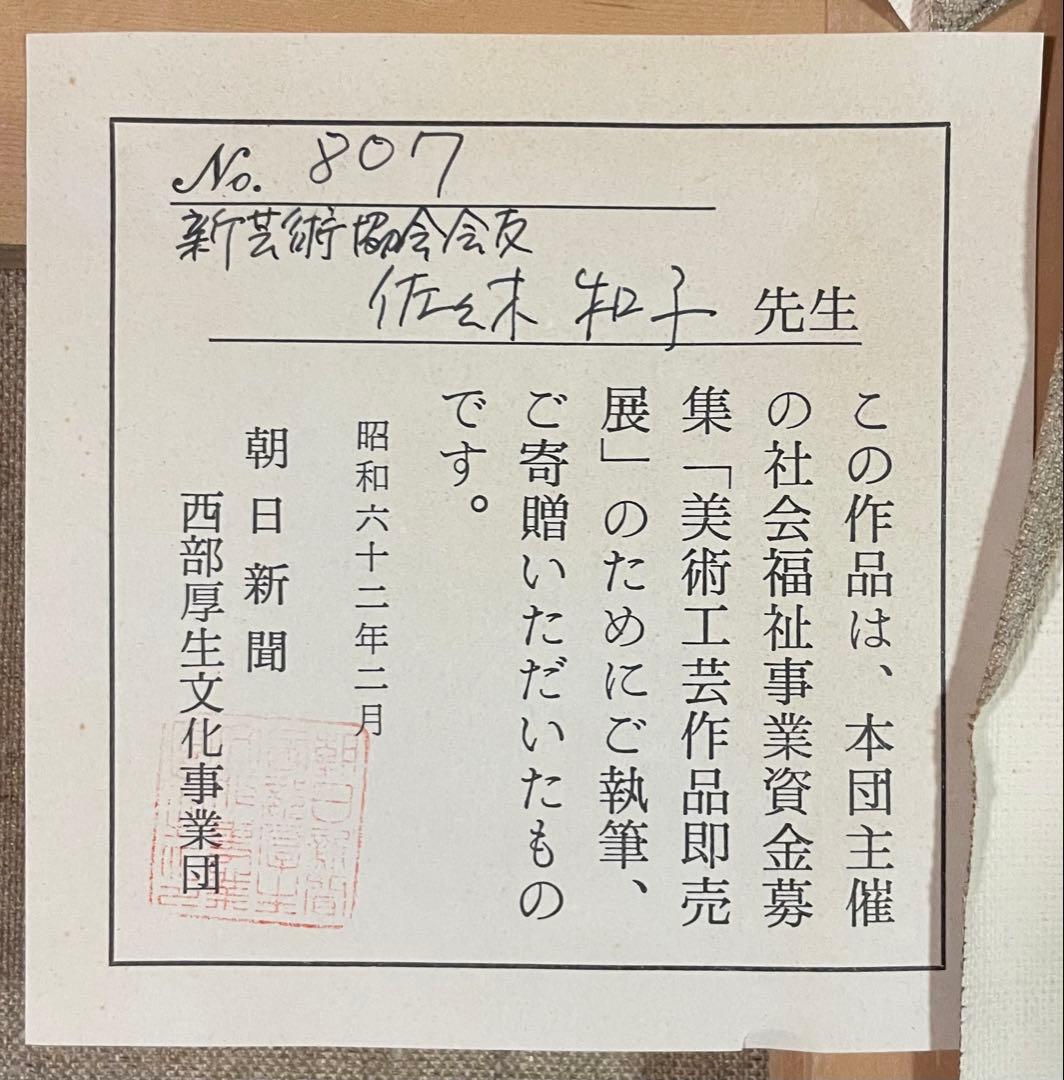 No. 807
新芸術協会会友
佐々木 和子 先生
この作品は、本団主催
の社会福祉事業資金募
集「美術工芸作品即売
展」のためにご執筆、
ご寄贈いただいたもの
です。
昭和六十二年二月
朝日新聞
西部厚生文化事業団